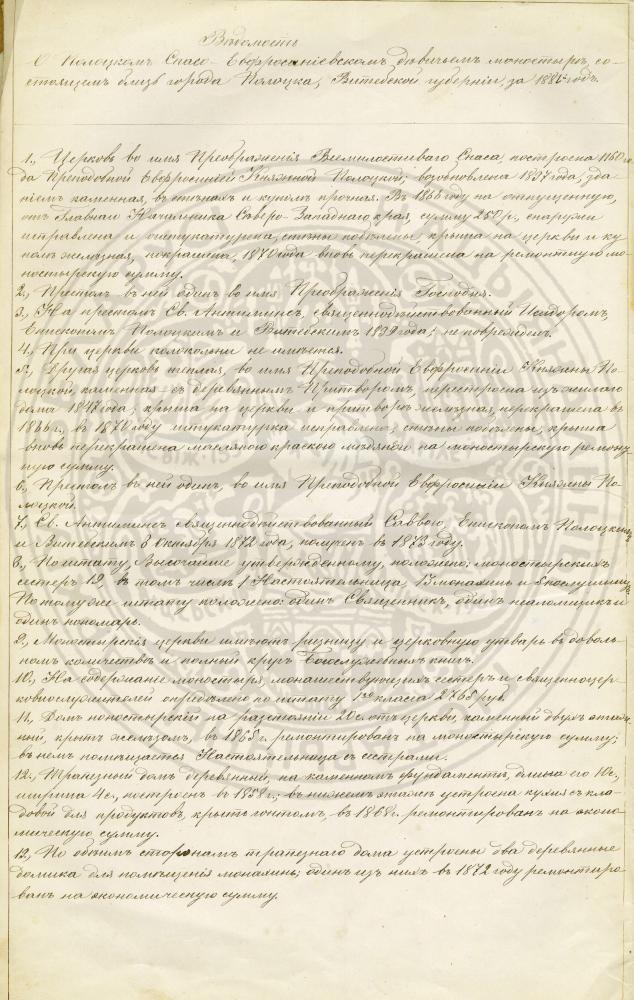 Вѣдомость
О Полоцкомъ Спасо-Евфросиніевскомъ дѣвичьемъ монастырѣ, со-
стоящемъ близъ города Полоцка, Витебской губерніи, за 188 годъ.
1., Церковь во имя Преображенія Всемилостиваго Спаса, построена 1160 го-
да Преподобной Евфросиніей Княжной Полоцкой; возобновлена 1837 года, зда-
ніемъ каменная, въ стѣнахъ и куполѣ прочная. Въ 1866 году на отпущенную,
отъ Главнаго Начальника Сѣверо-Западнаго края, сумму 250 р., снаружи
исправлена и оштукатурена, стѣны побѣлены, крыша на церкви и ку-
полѣ желѣзная, покрашена, 1870 года вновь перекрашена на ремонтную мо-
настырскую сумму.
2., Престолъ въ ней одинъ во имя Преображенія Господня.
3., На престолѣ Св. Антиминсъ, священнодѣйствованный Исидоромъ,
Епископомъ Полоцкимъ и Витебскимъ 1839 года; не поврежденъ.
4., При церкви колокольни не имѣется.
5., Другая церковь теплая, во имя Преподобной Евфросиніи Княжны По-
лоцкой, каменная съ деревяннымъ Притворомъ, перестроена изъ жилаго
дома 1847 года; крыша на церкви и притворѣ желѣзная, перекрашена въ
1866 г., въ 1870 году штукатурка исправлена, стѣны побѣлены, крыша
вновь перекрашена масляною краскою мѣдянкой на монастырскую ремонт-
ную сумму.
6., Престолъ въ ней одинъ, во имя Преподобной Евфросиніи Княжны По-
лоцкой.
7., Св. Антиминсъ священнодѣйствованный Саввою, Епископомъ Полоцкимъ
и Витебскимъ 8 Октября 1872 года, полученъ въ 1873 году.
8., По штату, Высочайше утвержденному, положено: монастырскихъ
сестеръ 19, въ томъ числѣ 1 Настоятельница, монахинь и послушницъ
По тому же штату положено: одинъ Священникъ, одинъ псаломщикъ и
одинъ пономарь.
9., Монастырскія церкви имѣютъ ризницу и церковную утварь въ доволь-
номъ количествѣ и полный кругъ Богослужебныхъ книгъ.
10., На содержаніе монастыря, монашествующихъ сестеръ и священноцер-
ковнослужителей опредѣлено по штату 1го класса 2765 руб.
11., Домъ монастырскій на разстояніи 20 с. отъ церкви, каменный двухъ этаж-
ный, крытъ желѣзомъ, въ 1865 г. ремонтированъ на монастырскую сумму;
въ немъ помѣщается Настоятельница съ сестрами.
12., Трапезный домъ деревянный, на каменномъ фундаментѣ, длина его 10 с.,
ширина 4 с., построенъ въ 1858 г.; въ нижнемъ этажѣ устроена кухня съ кла-
довой для продуктовъ, крытъ гонтомъ, въ 1868 г. ремонтированъ на эконо-
мическую сумму.
12., По обѣимъ сторонамъ трапезнаго дома устроены два деревянные
домика для помѣщенія монахинь; одинъ изъ нихъ въ 1872 году ремонтиро-
ванъ на экономическую сумму.